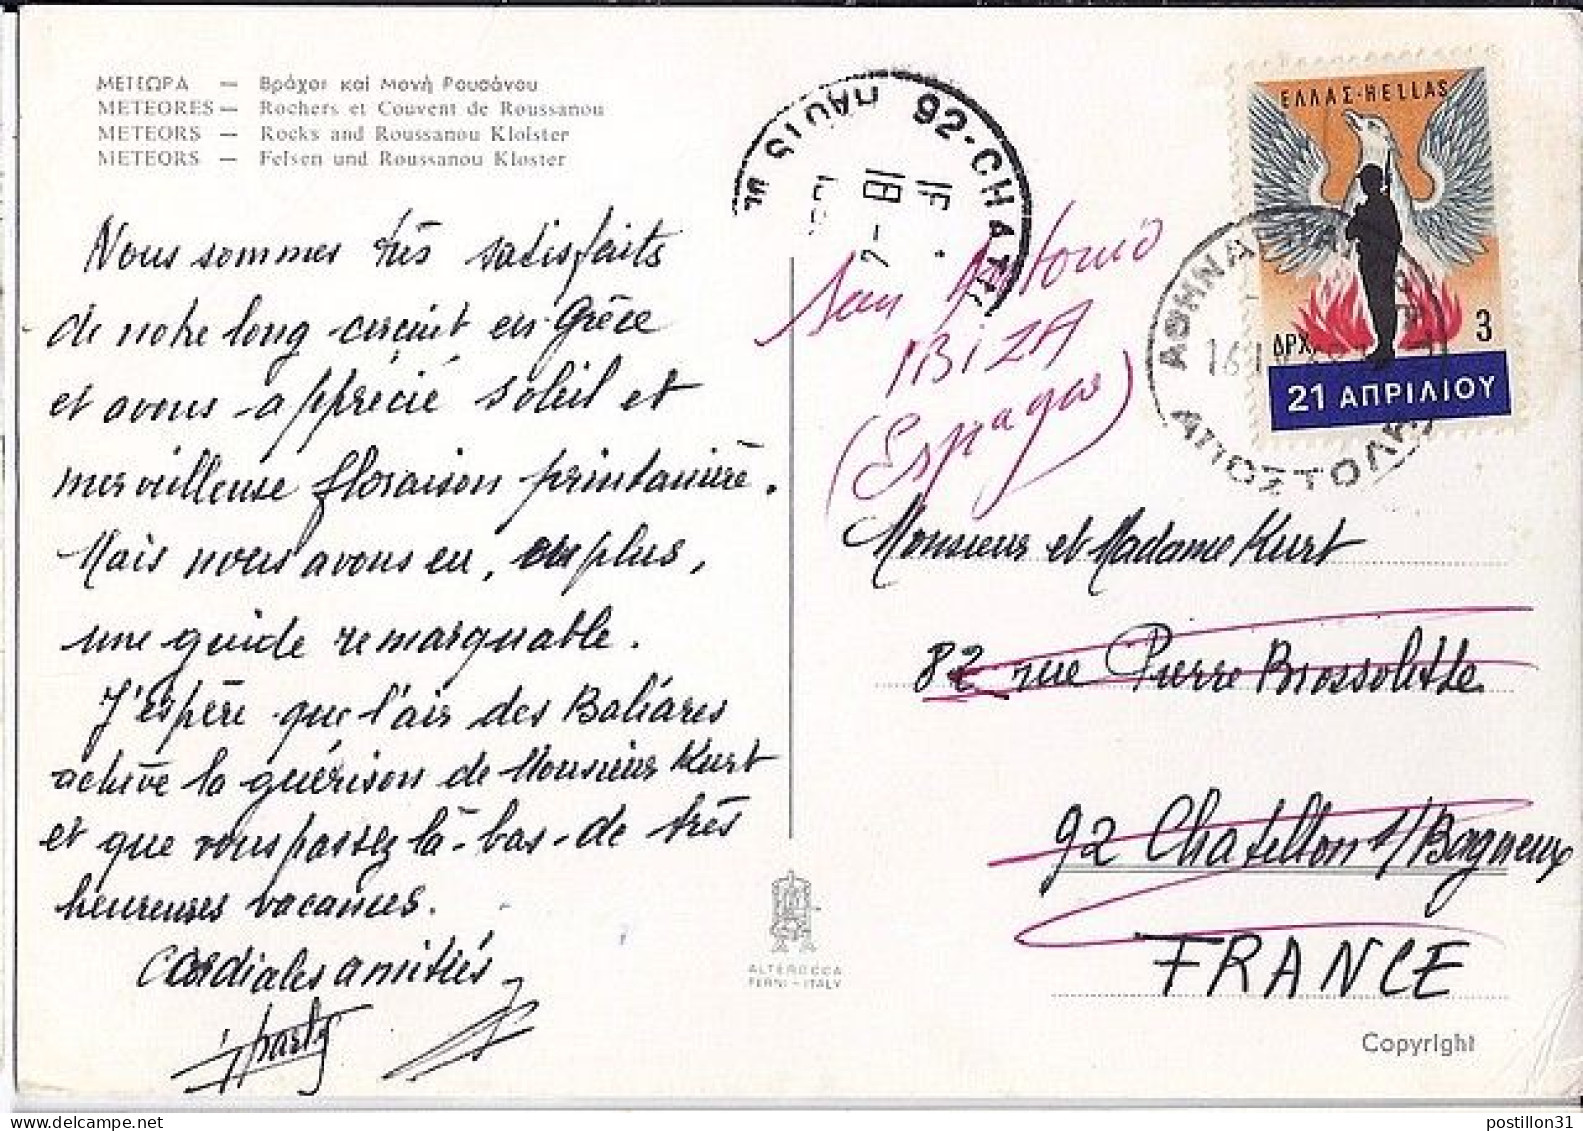 ΜΕΤΕΩΡΑ — Βράχοι καί Μονή Ρουσάνου
METEORES — Rochers et Couvent de Roussanou
METEORS — Rocks and Roussanou Kloister
METEORS — Felsen und Roussanou Kloster
Nous sommes très satisfaits
de notre long circuit en Grèce
et avons apprécié soleil et
merveilleuse floraison printanière.
Mais nous avons eu, en plus,
une guide remarquable.
J'espère que l'air des Baléares
achève la guérison de Monsieur Kurt
et que vous passez là-bas de très
heureuses vacances.
Cordiales amitiés
92-CHATI
18-7
San Antonio
IBIZA
(Espagne)
ΕΛΛΑΣ-HELLAS
ΔΡΧ. 3
21 ΑΠΡΙΛΙΟΥ
ΑΘΗΝΑ
ΑΠΟΣΤΟΛ
Monsieur et Madame Kurt
82 rue Pierre Brossolette
92 Chatillon s/Bagneux
FRANCE
ALTEROCCA
TERNI - ITALY
Copyright
postillon31